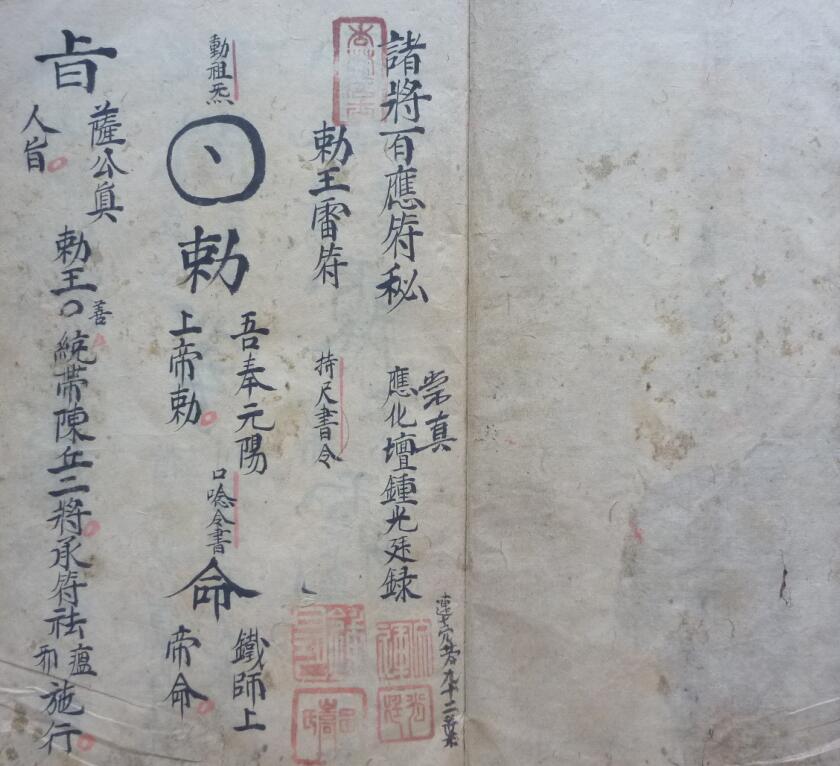 諸將百應符秘
崇真
應化壇鍾光廷録
勅王雷符
持尺書令
動祖炁
勅
吾奉元陽
上帝勅
口唸令書
命
鐵師上
帝命
旨
薩公真
人旨
勅王善統帶陳丘二將承符祛瘟
邪施行